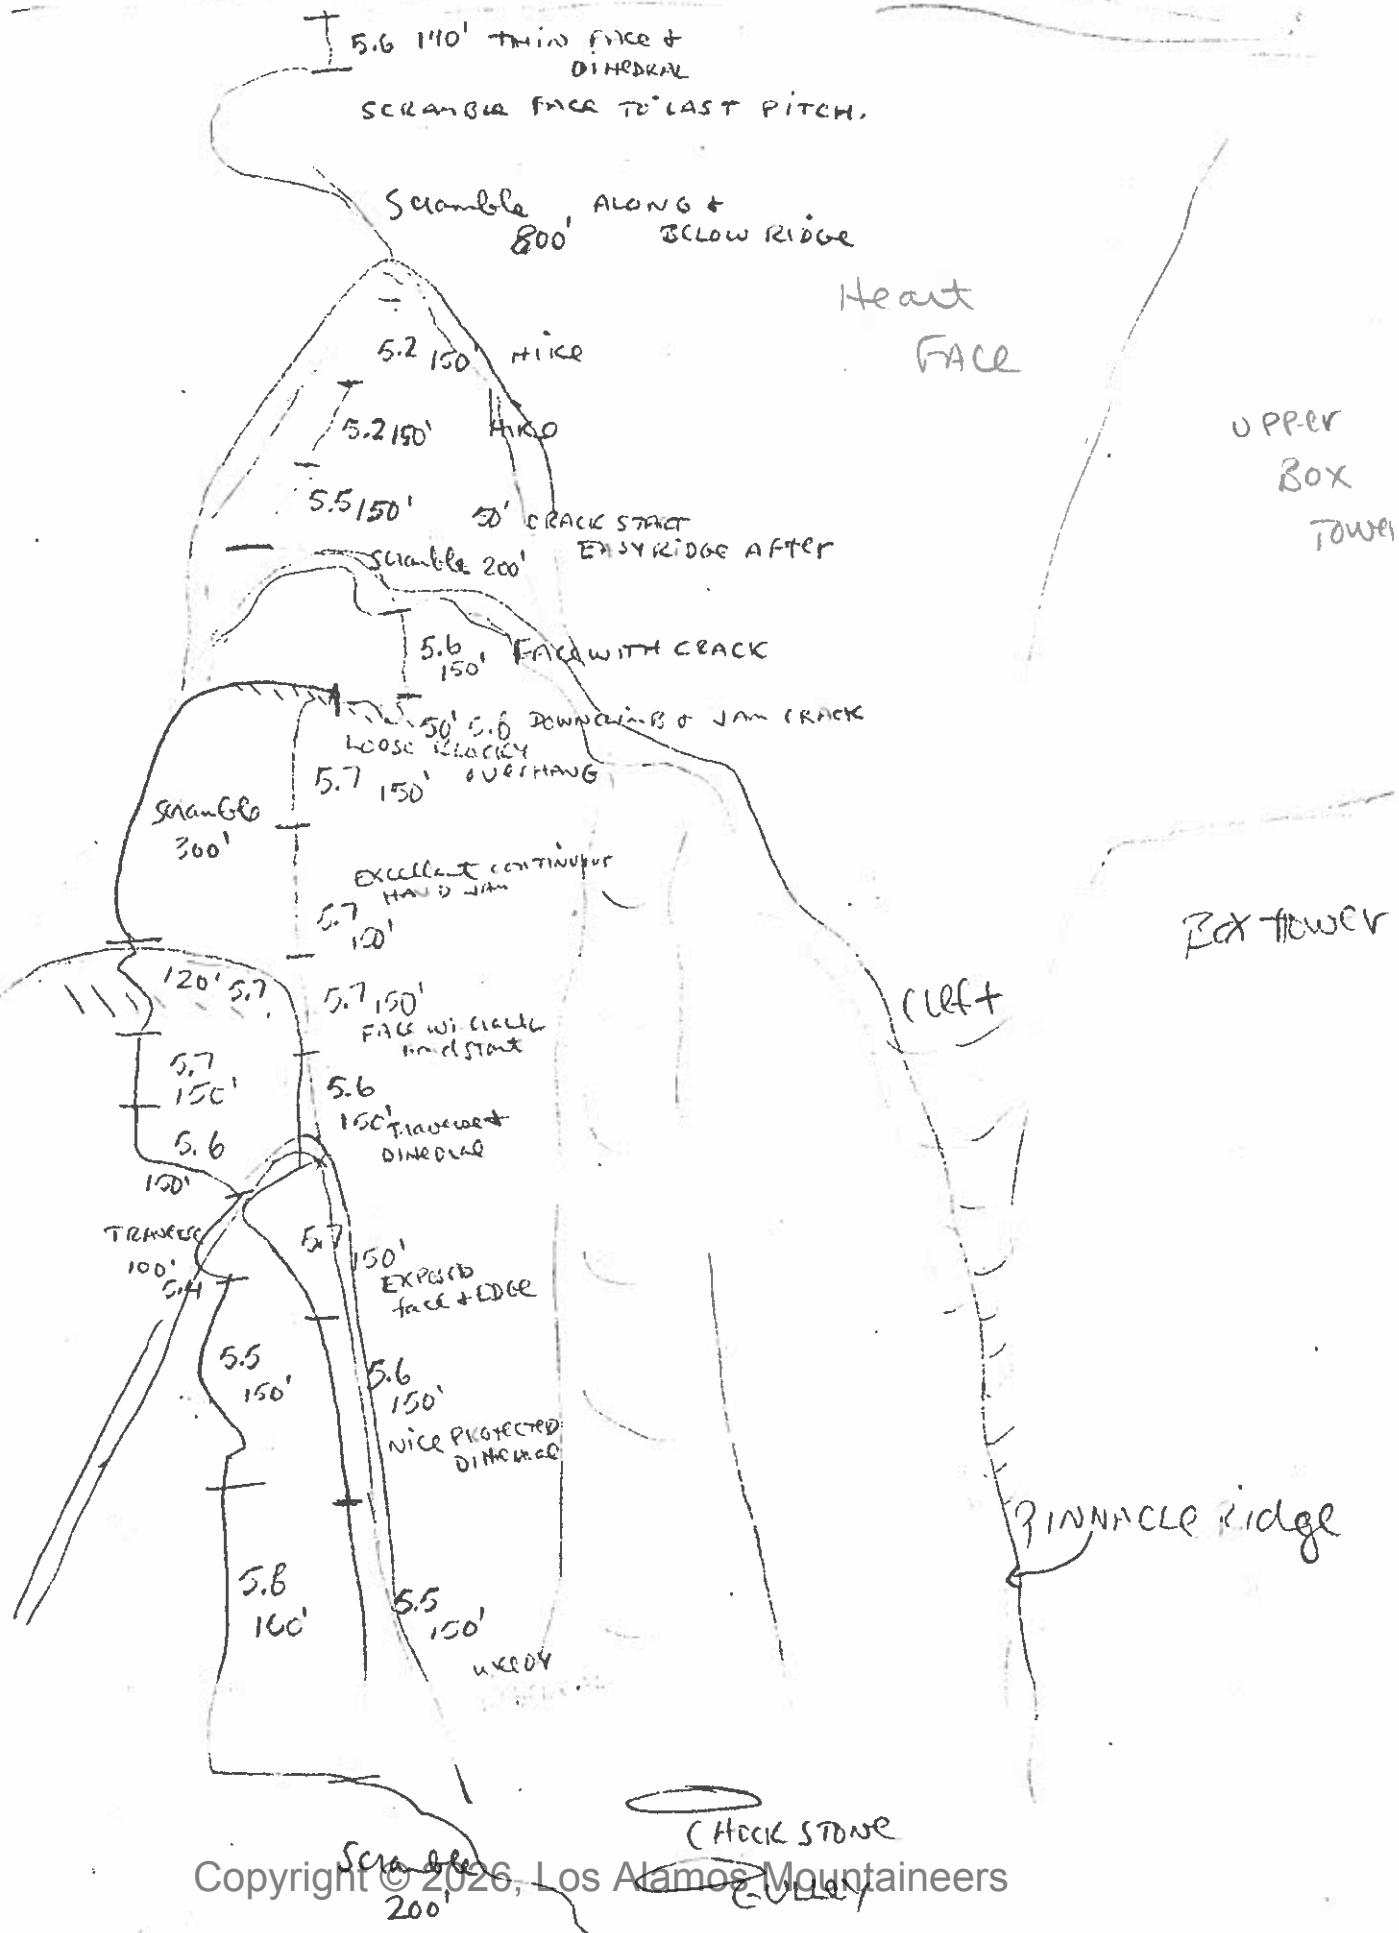 5.6 140' THIN FACE &
DIHEDRAL
SCRAMBLE FACE TO LAST PITCH.
Scramble ALONG &
800' BELOW RIDGE
Heart
FACE
5.2 150' HIKE
5.2 150' HIKE
UPPER
BOX
TOWER
5.5 150' 50' CRACK START
EASY RIDGE AFTER
Scramble 200'
5.6
150' FACE WITH CRACK
50' 5.6 DOWNCLIMB & JAM CRACK
LOOSE BLOCKY
OVERHANG
5.7 150'
Scramble
300'
EXCELLENT CONTINUOUS
HAND JAM
5.7
150'
BOX TOWER
120' 5.7
5.7 150'
FACE W/ CRACK
hard start
Cleft
5.7
150'
5.6
150' Traverse &
DIHEDRAL
5.6
150'
TRAVERSE
100'
5.4
5.7
150'
EXPOSED
face & EDGE
5.5
150'
5.6
150'
NICE PROTECTED
DIHEDRAL
PINNACLE Ridge
5.8
160'
5.5
150'
CHOCK STONE
GULLEY
Scramble
200'
Copyright © 2026, Los Alamos Mountaineers